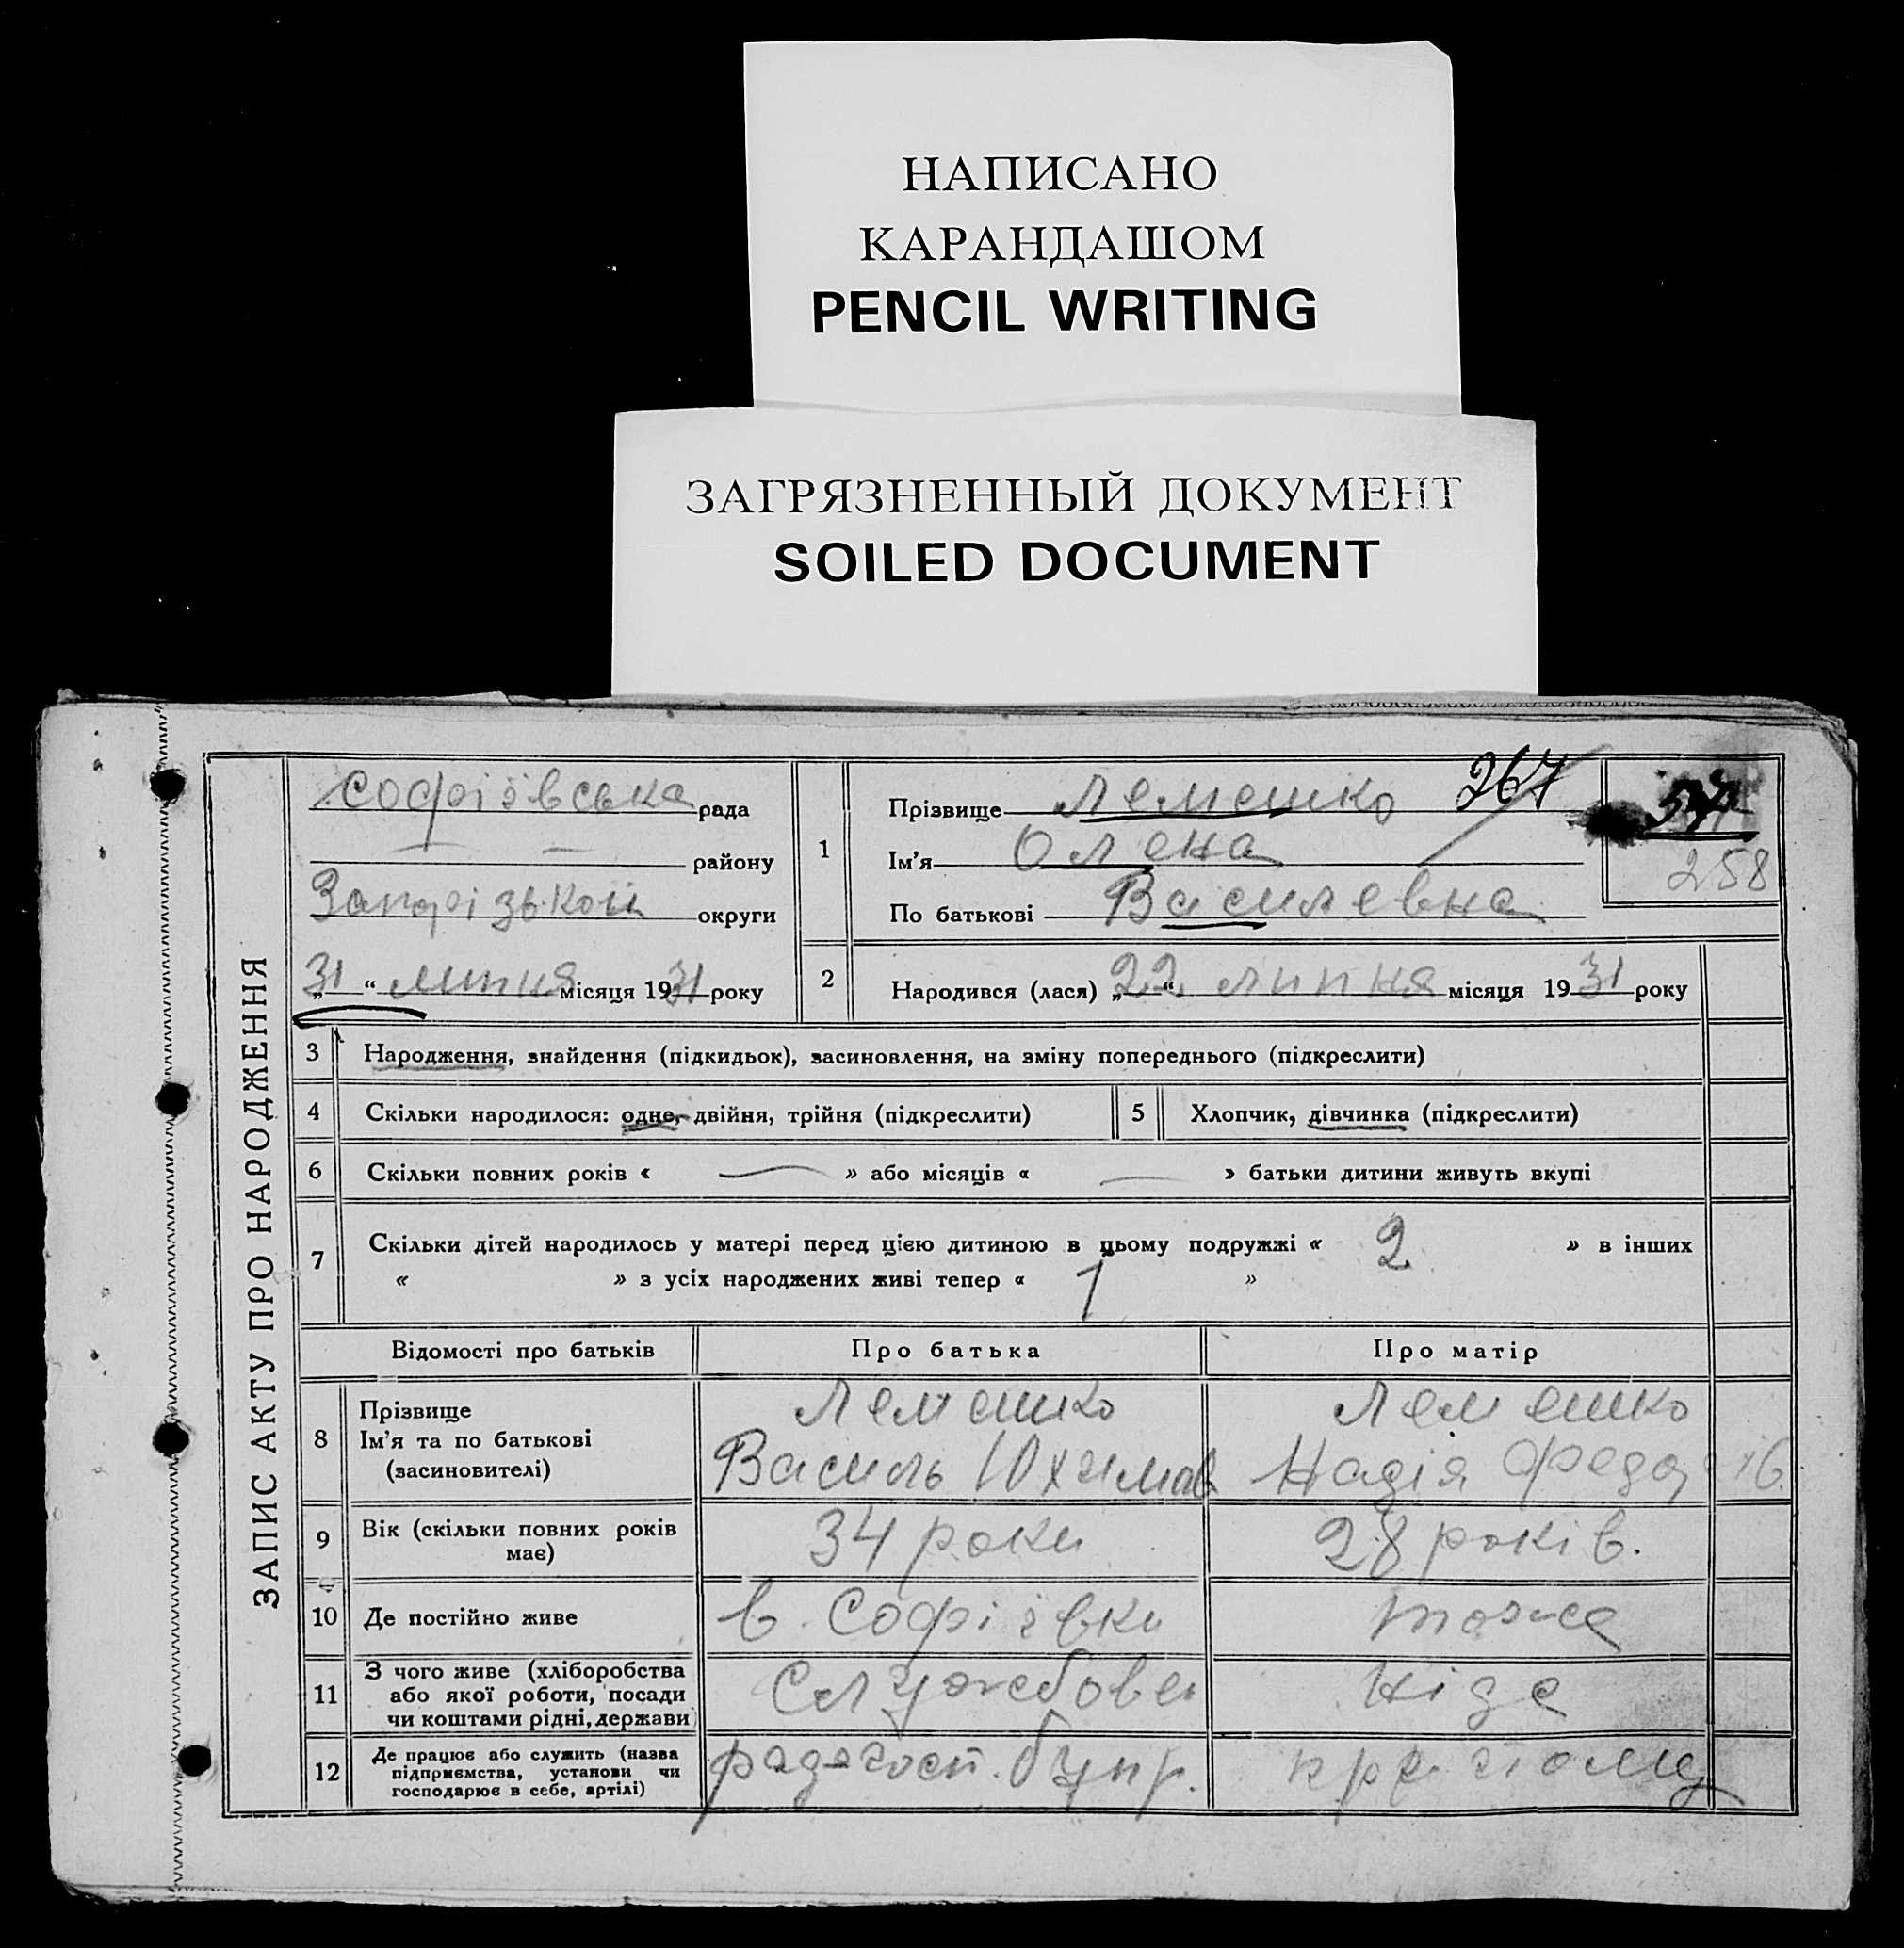 НАПИСАНО
КАРАНДАШОМ
PENCIL WRITING
ЗАГРЯЗНЕННЫЙ ДОКУМЕНТ
SOILED DOCUMENT
ЗАПИС АКТУ ПРО НАРОДЖЕННЯ
Софіївська рада
району
Запорізької округи
„31“ липня місяця 1931 року
1
Прізвище Лемешко 267
Ім'я Олена
По батькові Василевна
258
2 Народився (лася) „22“ липня місяця 1931 року
3 Народження, знайдення (підкидьок), засиновлення, на зміну попереднього (підкреслити)
4 Скільки народилося: одне, двійня, трійня (підкреслити) 5 Хлопчик, дівчинка (підкреслити)
6 Скільки повних років « — » або місяців « — » батьки дитини живуть вкупі
7 Скільки дітей народилось у матері перед цією дитиною в цьому подружжі « 2 » в інших
« » з усіх народжених живі тепер « 1 »
Відомості про батьків Про батька Про матір
8 Прізвище Лемешко Лемешко
Ім'я та по батькові Василь Юхимов Надія
(засиновителі)
9 Вік (скільки повних років має) 34 роки 28 років.
10 Де постійно живе в Софіївки тоже
11 З чого живе (хліборобства
або якої роботи, посади
чи коштами рідні, держави) Службовец ніде
12 Де працює або служить (назва
підприємства, установи чи
господарює в себе, артілі) радгосп.